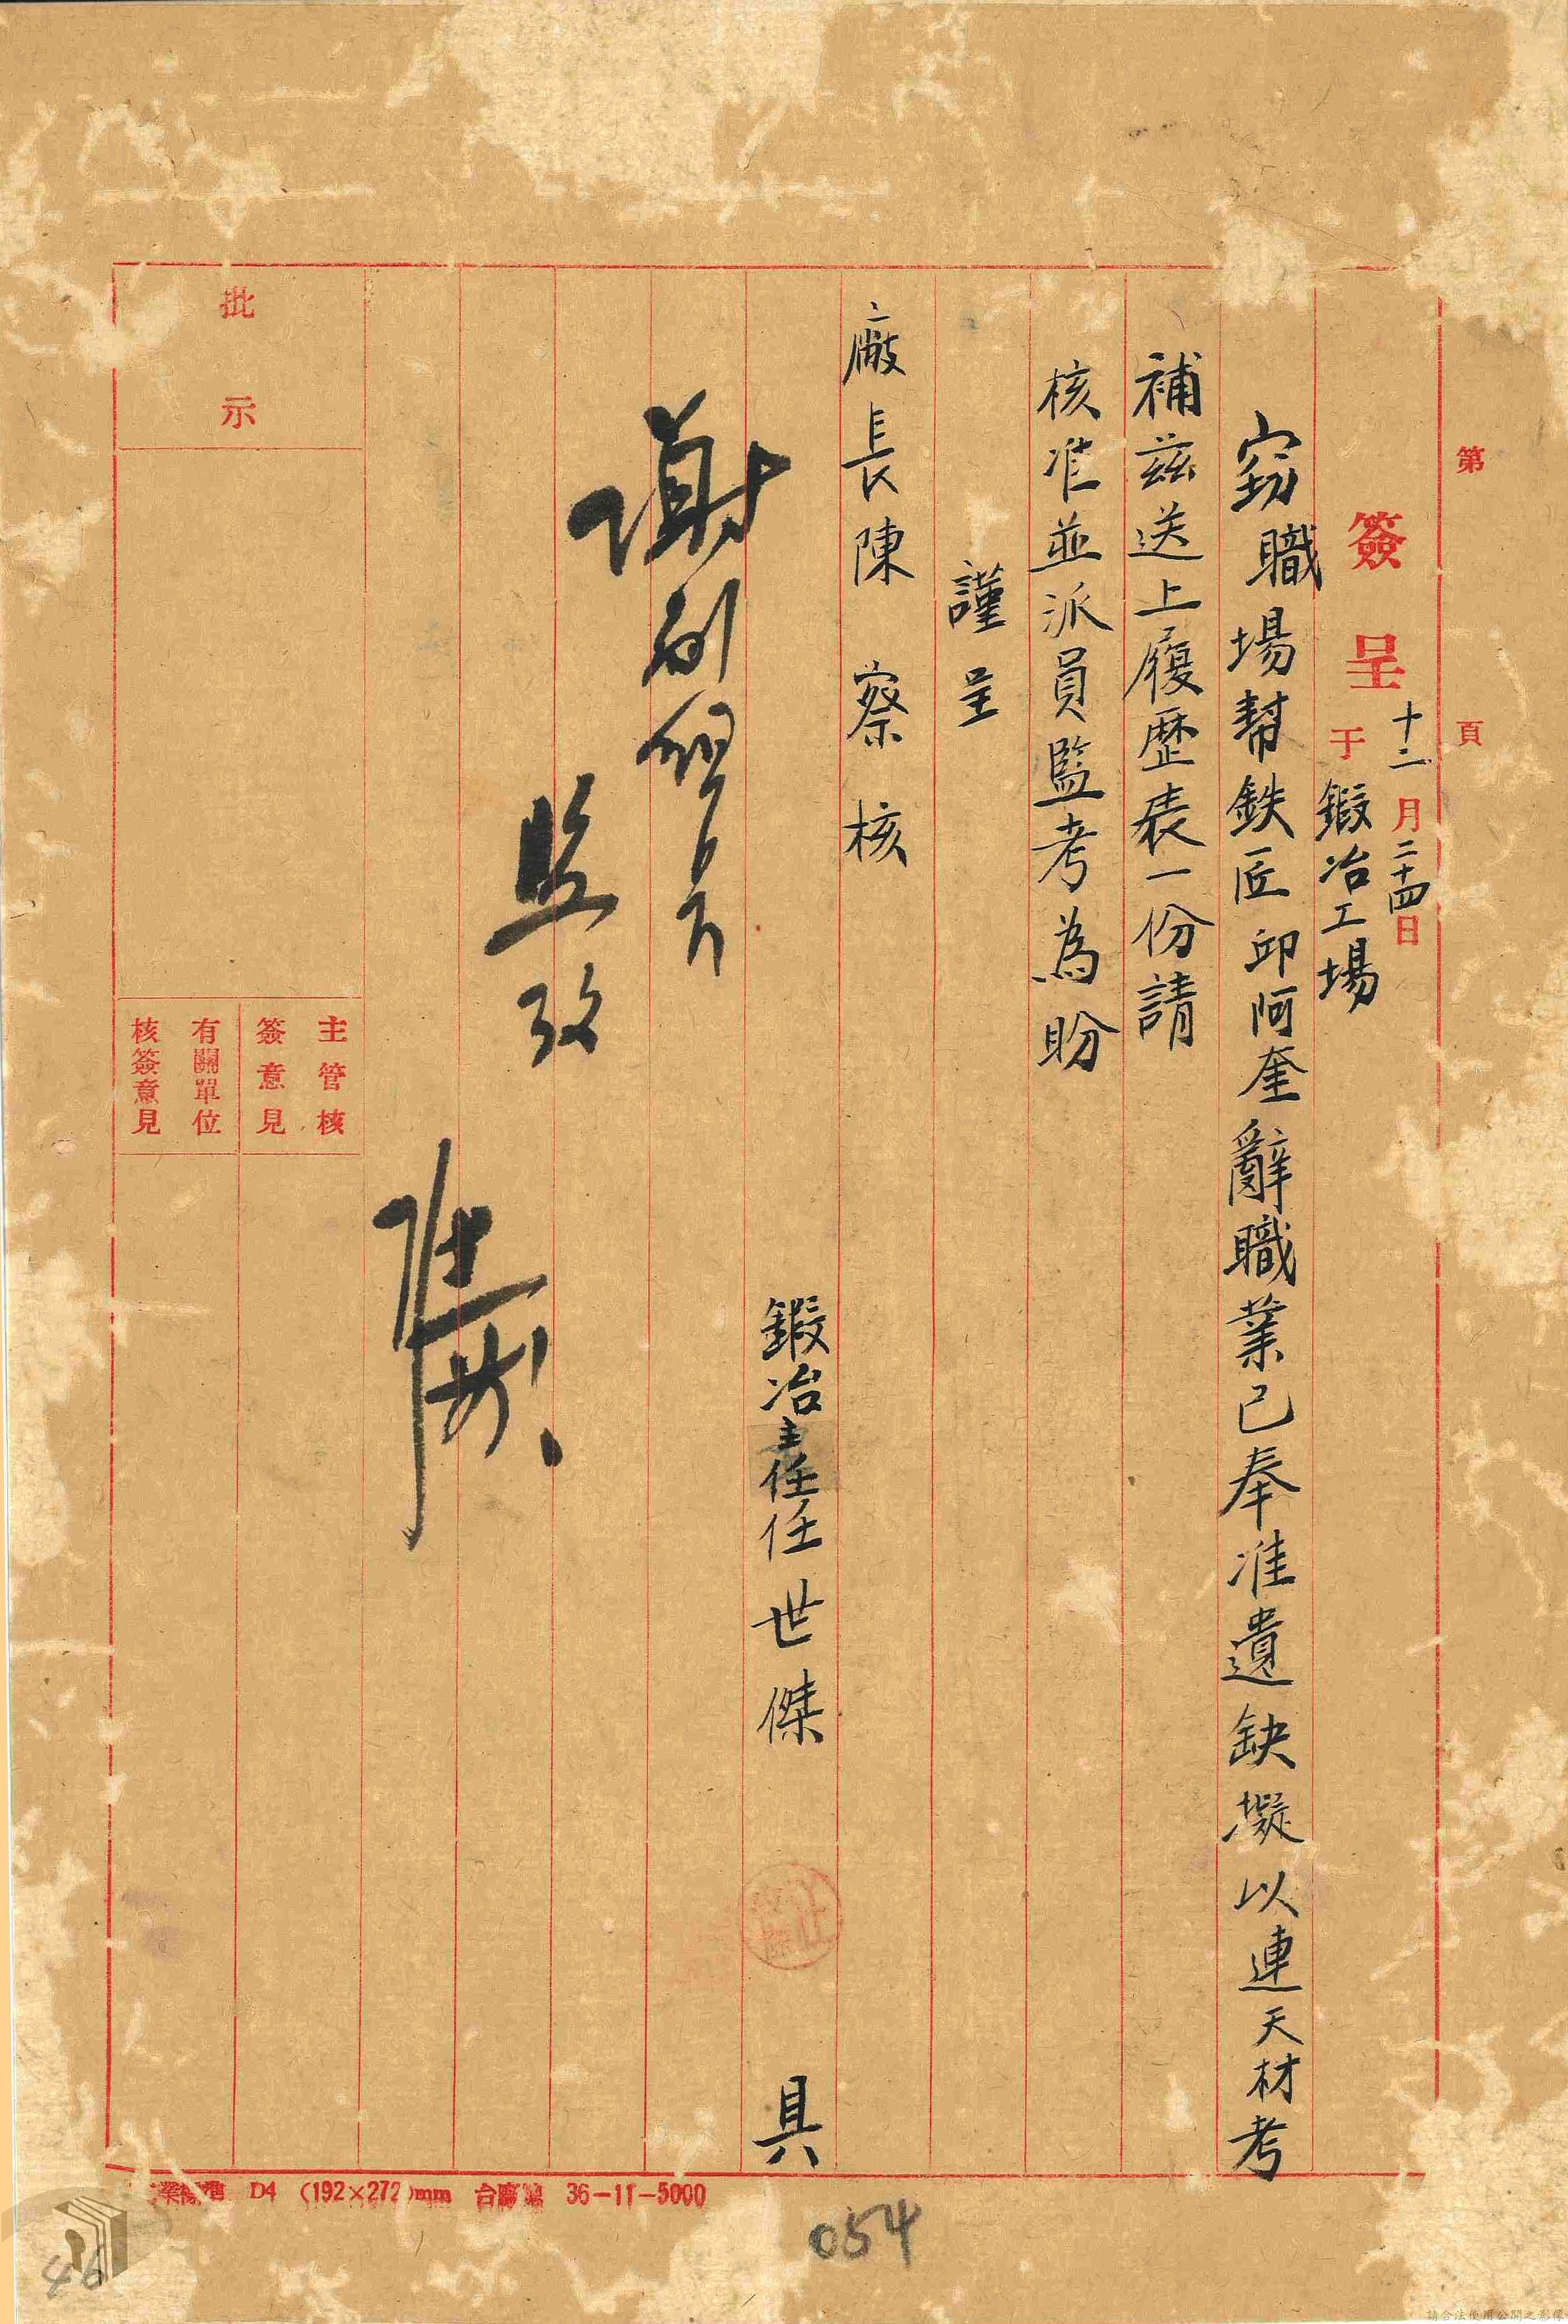 第 頁
簽呈 十二月二十四日
于 鍛冶工場
竊職場幫鉄匠邱阿奎辭職業已奉准遺缺擬以連天材考
補茲送上履歷表一份請
核准並派員監考為盼
謹呈
廠長陳 察核
鍛冶主任任世傑 具
謝副
監攷
批示
主管核
簽意見
有關單位
核簽意見
D4 (192×272)mm 36-11-5000
054
46